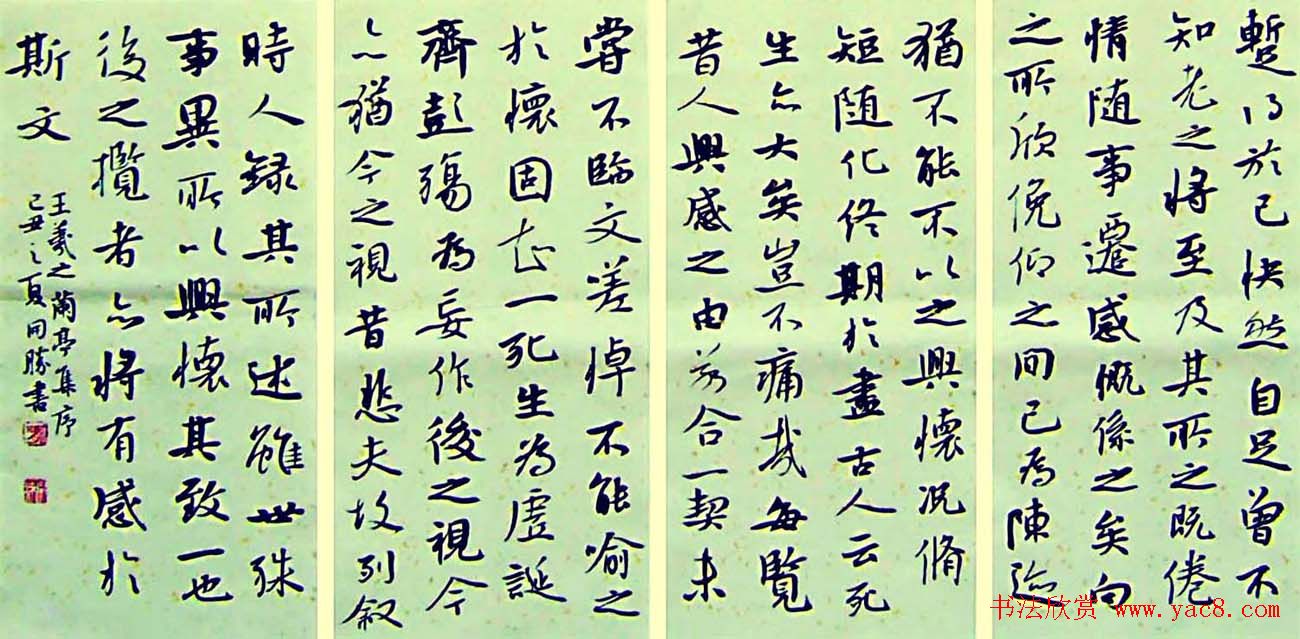 暫得於己快然自足曾不
知老之將至及其所之既倦
情随事遷感慨係之矣向
之所欣俛仰之間已為陳跡
猶不能不以之興懷況脩
短随化終期於盡古人云死
生亦大矣豈不痛哉每覽
昔人興感之由若合一契未
嘗不臨文嗟悼不能喻之
於懷固知一死生為虛誕
齊彭殤為妄作後之視今
亦猶今之視昔悲夫故列叙
時人錄其所述雖世殊
事異所以興懷其致一也
後之攬者亦將有感於
斯文
王羲之蘭亭集序
己丑之夏同勝書
书法欣赏 www.yac8.com